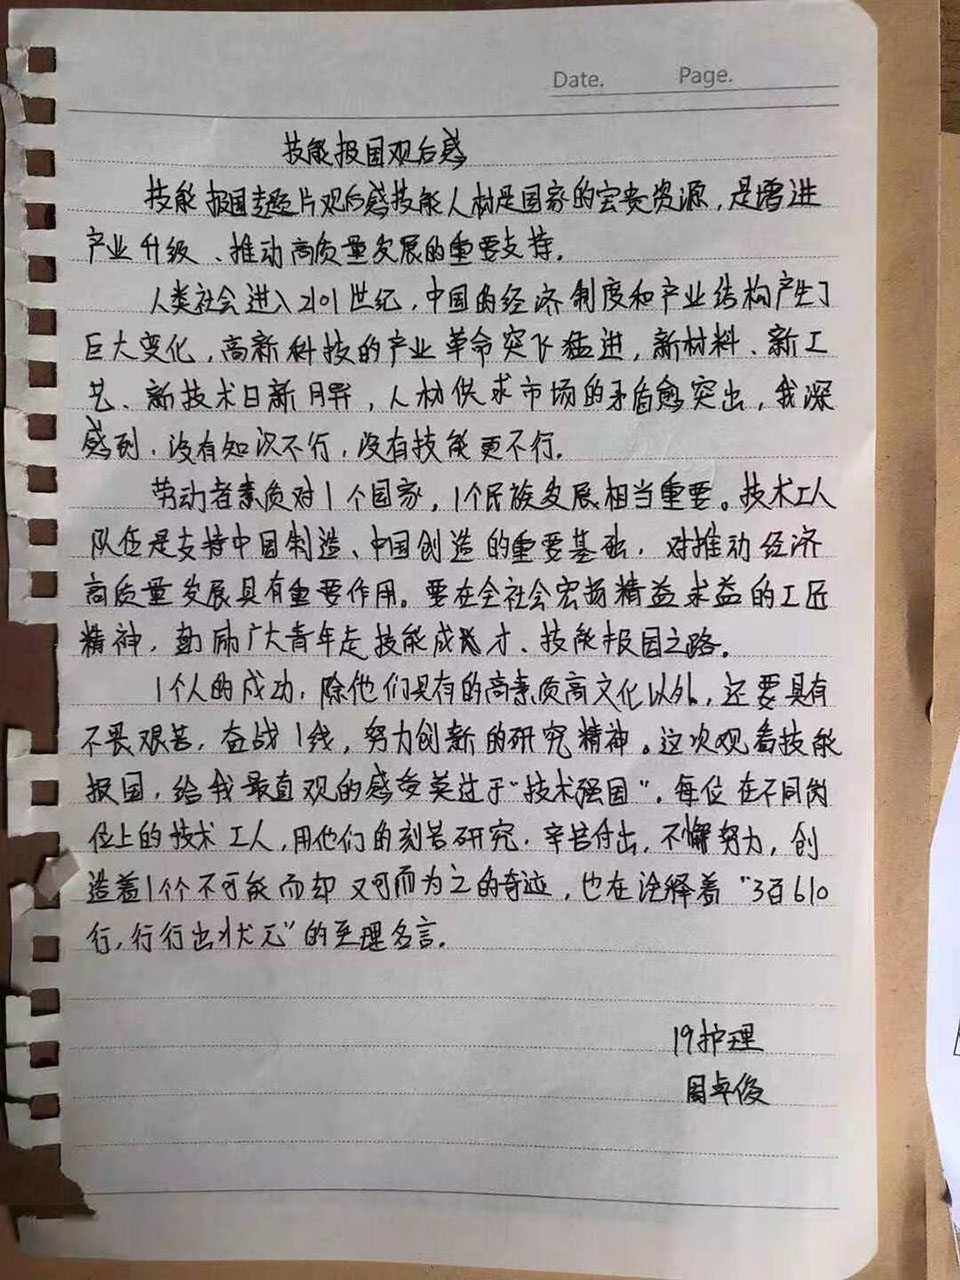 Date. Page.
技能报国观后感
技能报国专题片观后感技能人材是国家的宝贵资源，是增进
产业升级、推动高质量发展的重要支持。
人类社会进入201世纪，中国的经济制度和产业结构产生了
巨大变化，高新科技的产业革命突飞猛进，新材料、新工
艺、新技术日新月异，人材供求市场的矛盾愈突出，我深
感到，没有知识不行，没有技能更不行。
劳动者素质对1个国家，1个民族发展相当重要。技术工人
队伍是支持中国制造、中国创造的重要基础，对推动经济
高质量发展具有重要作用。要在全社会宏扬精益求益的工匠
精神，勤励广大青年走技能成才、技能报国之路。
1个人的成功，除他们具有的高素质高文化以外，还要具有
不畏艰苦，奋战1线，努力创新的研究精神。这次观看技能
报国，给我最直观的感受莫过于“技术强国”。每位在不同岗
位上的技术工人，用他们的刻苦研究，辛苦付出，不懈努力，创
造着1个个不可能而却又可而为之的奇迹，也在诠释着“3百610
行，行行出状元”的至理名言。
19护理
周卓俊